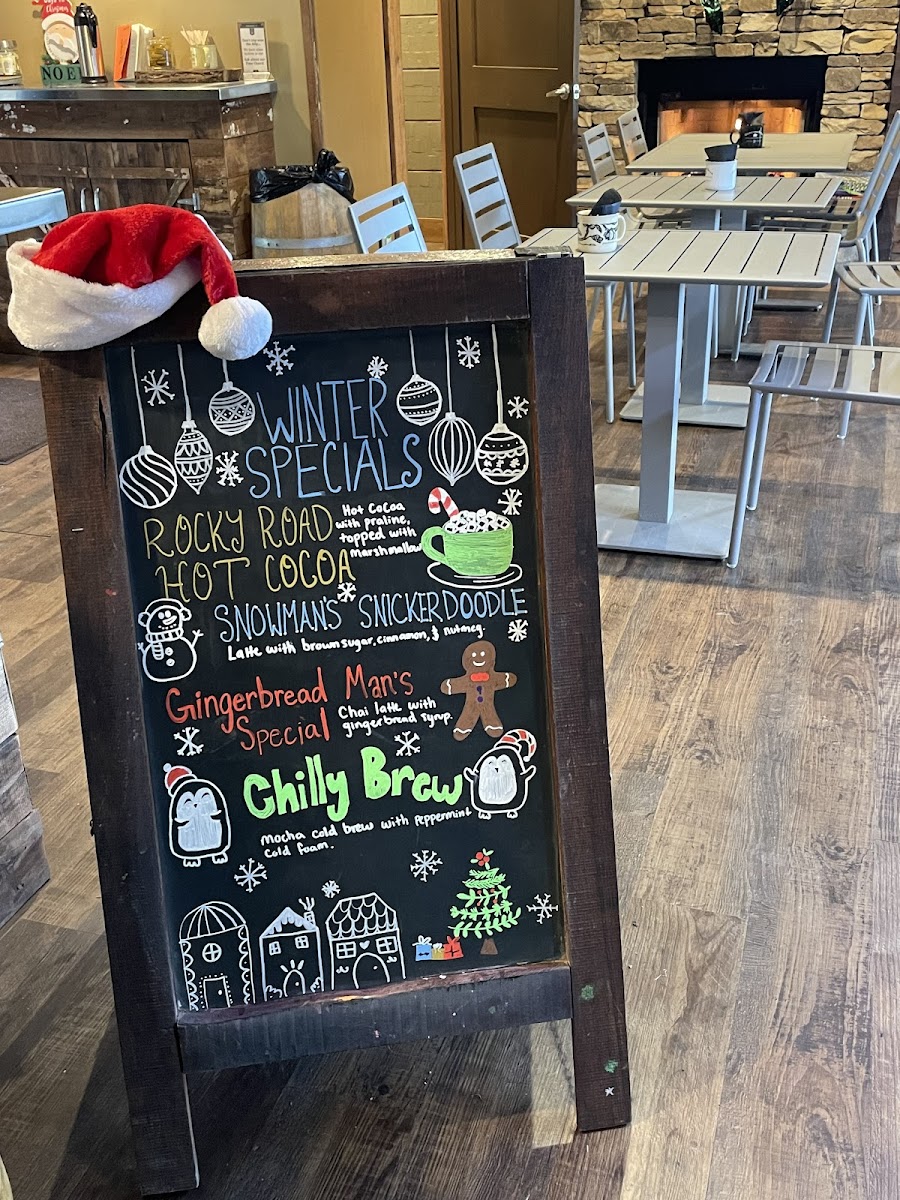 NOEL
WINTER
SPECIALS
ROCKY ROAD
HOT COCOA
Hot Cocoa
with praline,
topped with
marshmallow
SNOWMAN'S SNICKERDOODLE
Latte with brown sugar, cinnamon, & nutmeg.
Gingerbread Man's
Special
Chai latte with
gingerbread syrup.
Chilly Brew
Mocha cold brew with peppermint
cold foam.